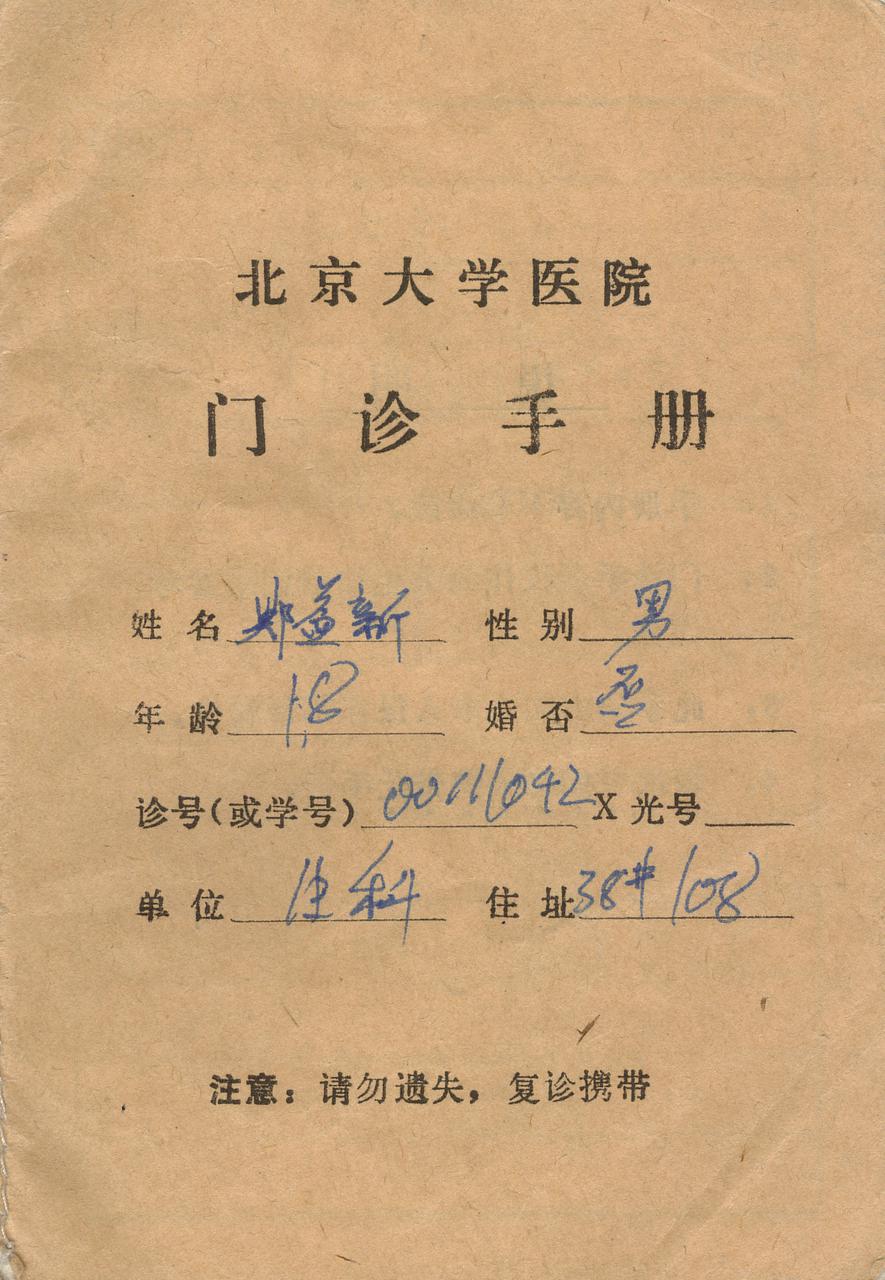 北京大学医院
门诊手册
姓名 郑益新 性别 男
年龄 18 婚否 否
诊号(或学号) 00111042 X光号
单位 生科 住址 38# 108
注意：请勿遗失，复诊携带